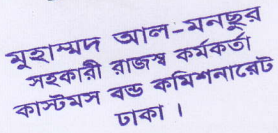 মুহাম্মদ আল-মনছুর
সহকারী রাজস্ব কর্মকর্তা
কাস্টমস বন্ড কমিশনারেট
ঢাকা ।